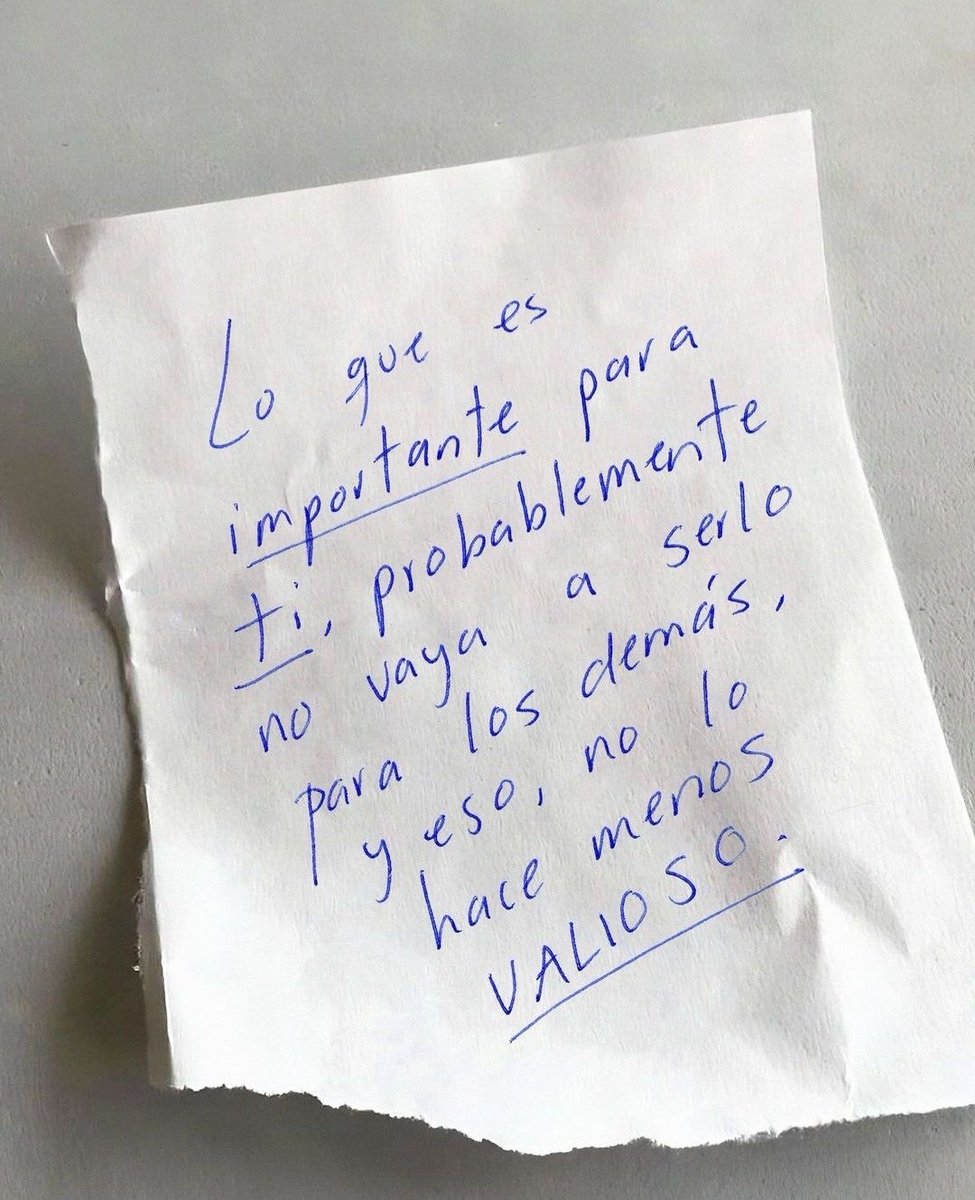 Lo que es
importante para
ti, probablemente
no vaya a serlo
para los demás,
y eso, no lo
hace menos
VALIOSO.